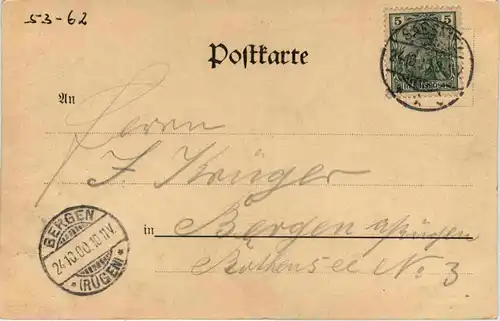 53-62
5 5
Postkarte
An
Herrn
J. Krüger
in Bergen a/Rügen
Rothensee No. 3
BERGEN
24.10.00.10-11V.
* (RÜGEN) *